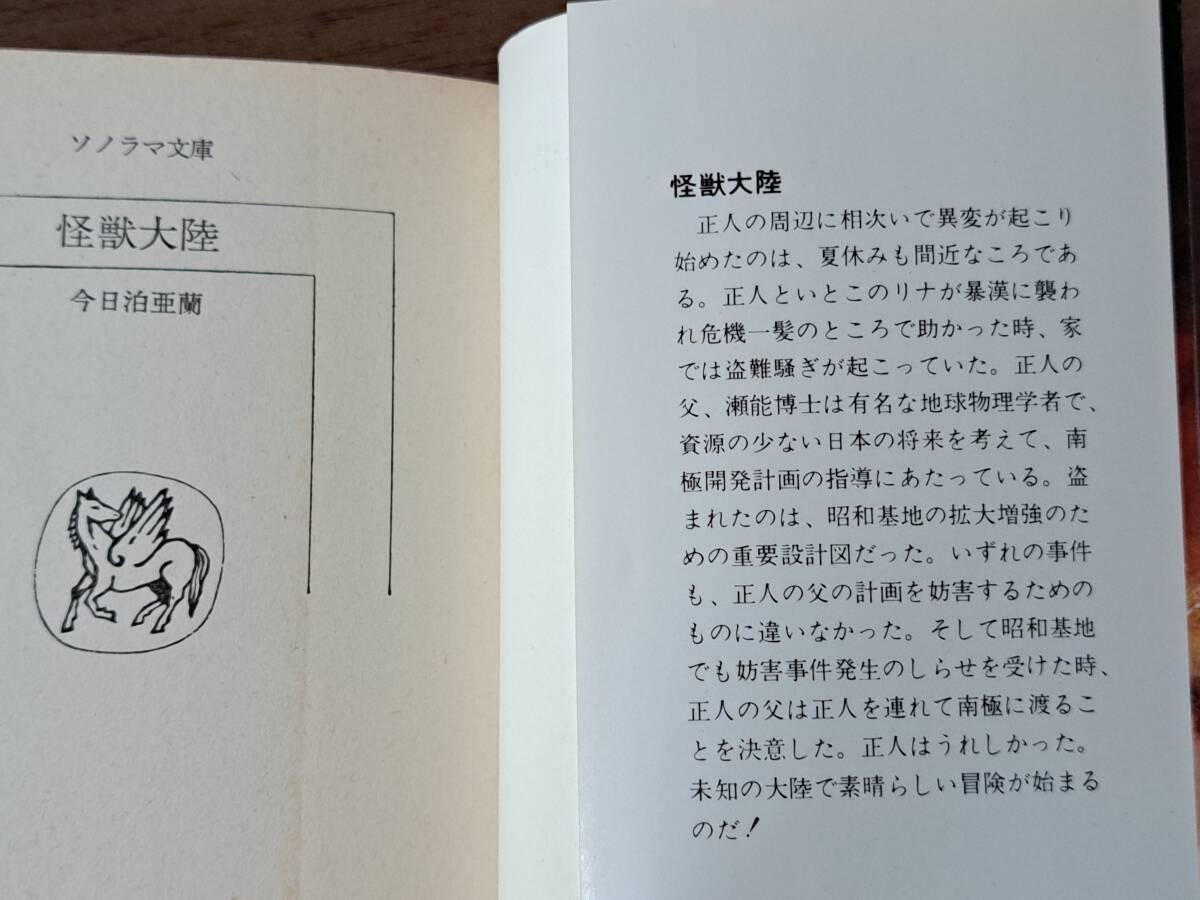 ソノラマ文庫
怪獣大陸
今日泊亜蘭
怪獣大陸
正人の周辺に相次いで異変が起こり
始めたのは、夏休みも間近なころであ
る。正人といとこのリナが暴漢に襲わ
れ危機一髪のところで助かった時、家
では盗難騒ぎが起こっていた。正人の
父、瀬能博士は有名な地球物理学者で、
資源の少ない日本の将来を考えて、南
極開発計画の指導にあたっている。盗
まれたのは、昭和基地の拡大増強のた
めの重要設計図だった。いずれの事件
も、正人の父の計画を妨害するための
ものに違いなかった。そして昭和基地
でも妨害事件発生のしらせを受けた時、
正人の父は正人を連れて南極に渡るこ
とを決意した。正人はうれしかった。
未知の大陸で素晴らしい冒険が始まる
のだ！